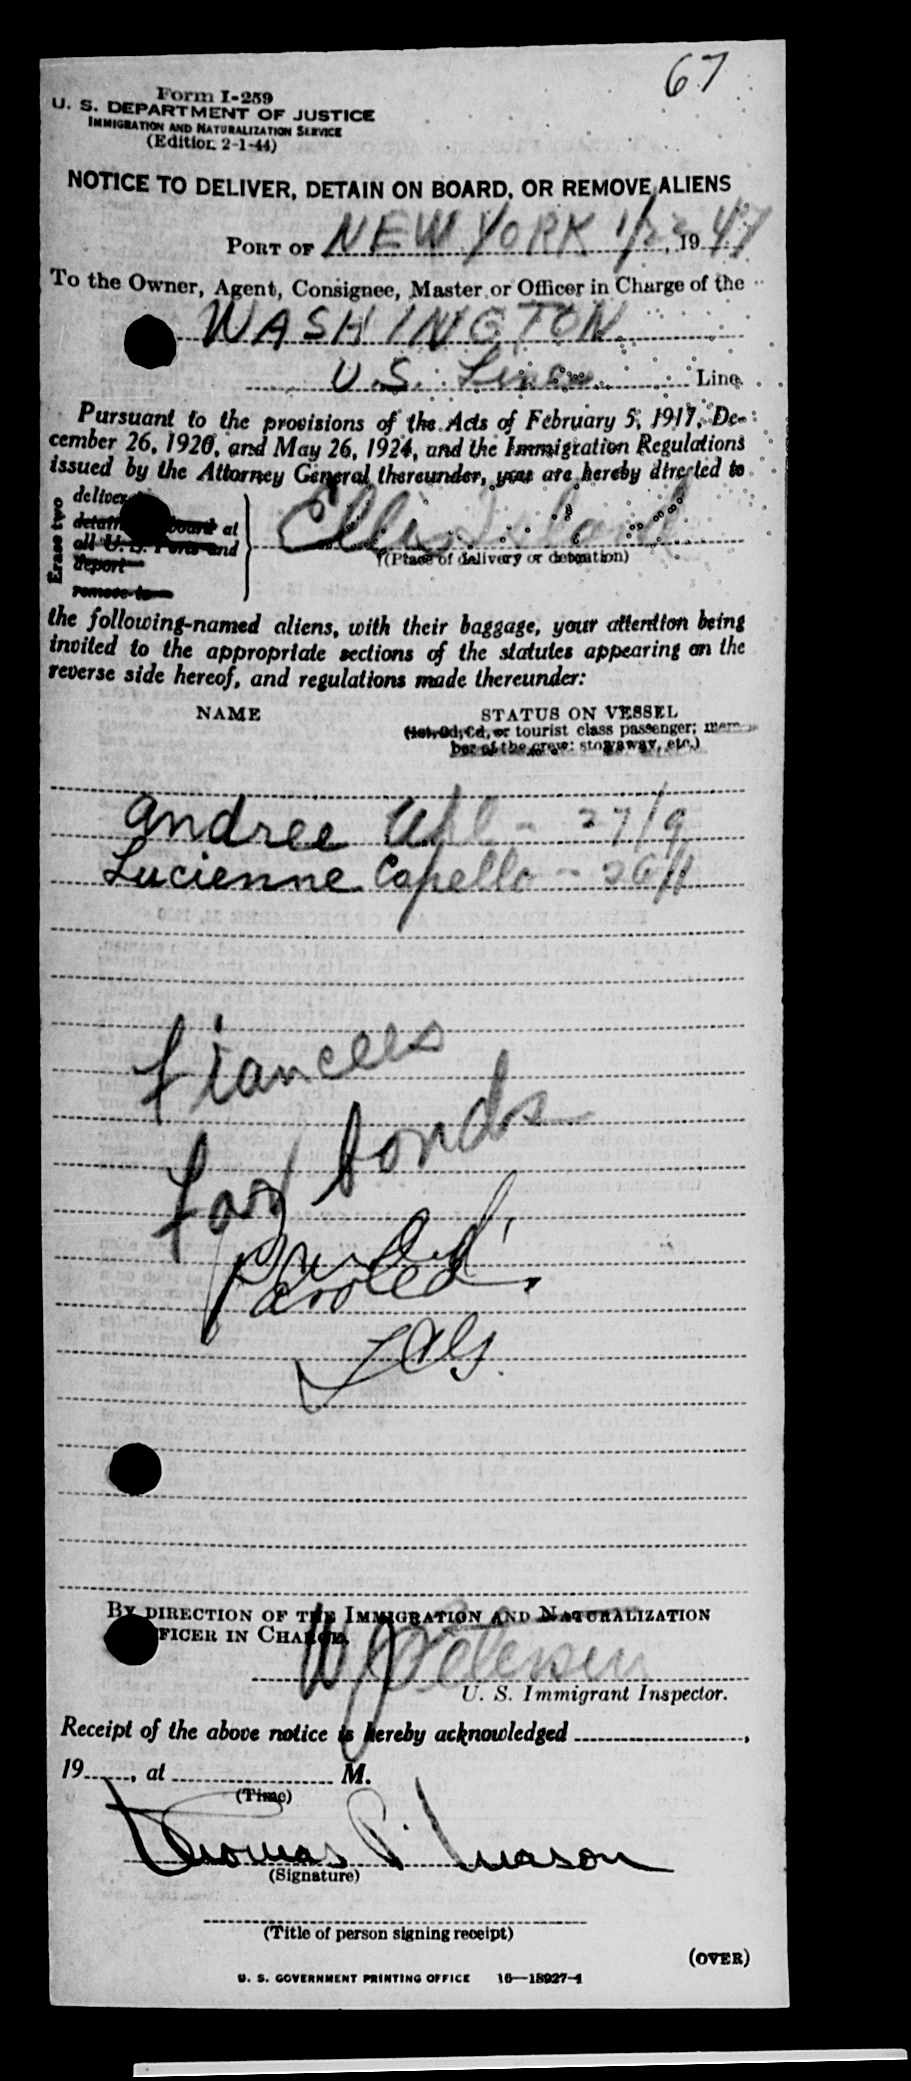 67
Form I-259
U. S. DEPARTMENT OF JUSTICE
IMMIGRATION AND NATURALIZATION SERVICE
(Edition 2-1-44)
NOTICE TO DELIVER, DETAIN ON BOARD, OR REMOVE ALIENS
PORT OF NEW YORK 1/23, 1947
To the Owner, Agent, Consignee, Master or Officer in Charge of the
WASHINGTON
U.S. Lines Line.
Pursuant to the provisions of the Acts of February 5, 1917, De-
cember 26, 1920, and May 26, 1924, and the Immigration Regulations
issued by the Attorney General thereunder, you are hereby directed to
Erase two
deliver
detain board at
all U.S. Ports and
deport
remove to
Ellis Island
(Place of delivery or detention)
the following-named aliens, with their baggage, your attention being
invited to the appropriate sections of the statutes appearing on the
reverse side hereof, and regulations made thereunder:
NAME STATUS ON VESSEL
(1st, 2d, Cd, or tourist class passenger; mem-
ber of the crew; stowaway, etc.)
Andree Uhl - 27/9
Lucienne Capello - 26/11
fiancees
for bonds
Paroled
BY DIRECTION OF THE IMMIGRATION AND NATURALIZATION
FICER IN CHARGE.
W J Petersen
U. S. Immigrant Inspector.
Receipt of the above notice is hereby acknowledged ,
19 , at M.
(Time)
Thomas P. Mason
(Signature)
(Title of person signing receipt)
(OVER)
U. S. GOVERNMENT PRINTING OFFICE 16—18927-1